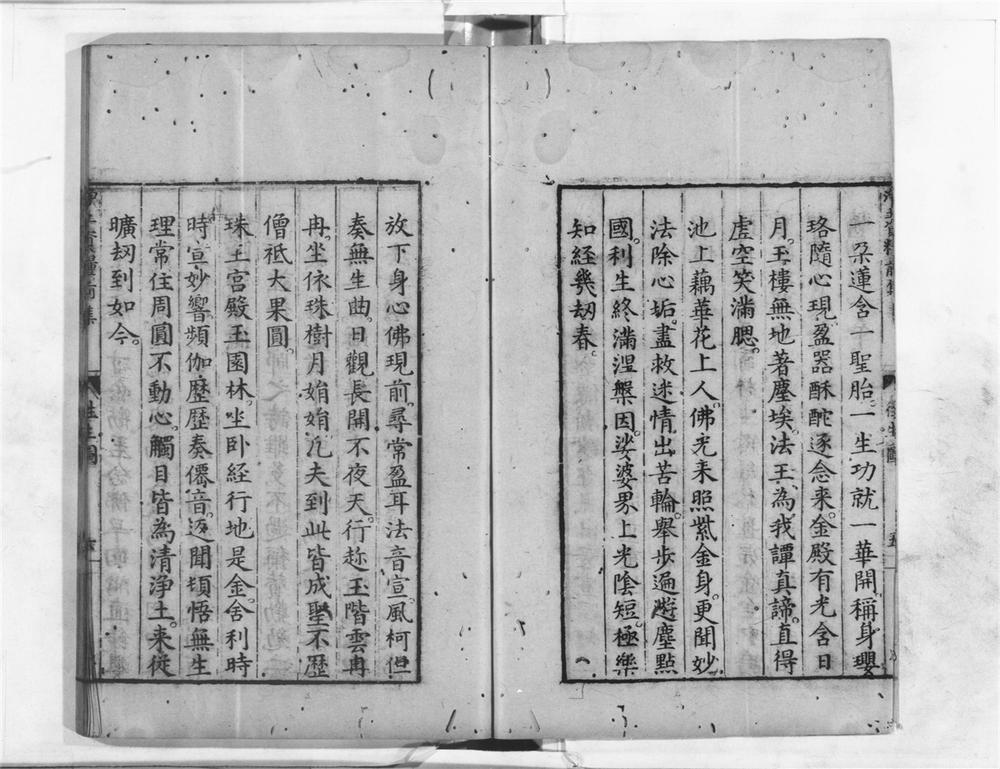 一朶蓮含一聖胎一生功就一華開。稱身瓔
珞隨心現盈器酥酡逐念来。金殿有光含日
月。玉樓無地著塵埃。法王為我譚真諦。直得
虛空笑滿腮。
池上藕華花上人。佛光来照紫金身。更聞妙
法除心垢。盡救迷情出苦輪。舉步遍遊塵點
國。利生終滿涅槃因。娑婆界上光陰短。極樂
知經幾劫春。
放下身心佛現前。尋常盈耳法音宣。風柯但
奏無生曲。日觀長開不夜天。行趂玉階雲冉
冉。坐依珠樹月娟娟。凡夫到此皆成聖不歷
僧祇大果圓。
珠王宫殿玉園林。坐卧経行地是金。舍利時
時宣妙響頻伽歴歴奏僊音。返聞頓悟無生
理常住周圓不動心。觸目皆為清淨土。来從
曠劫到如今。